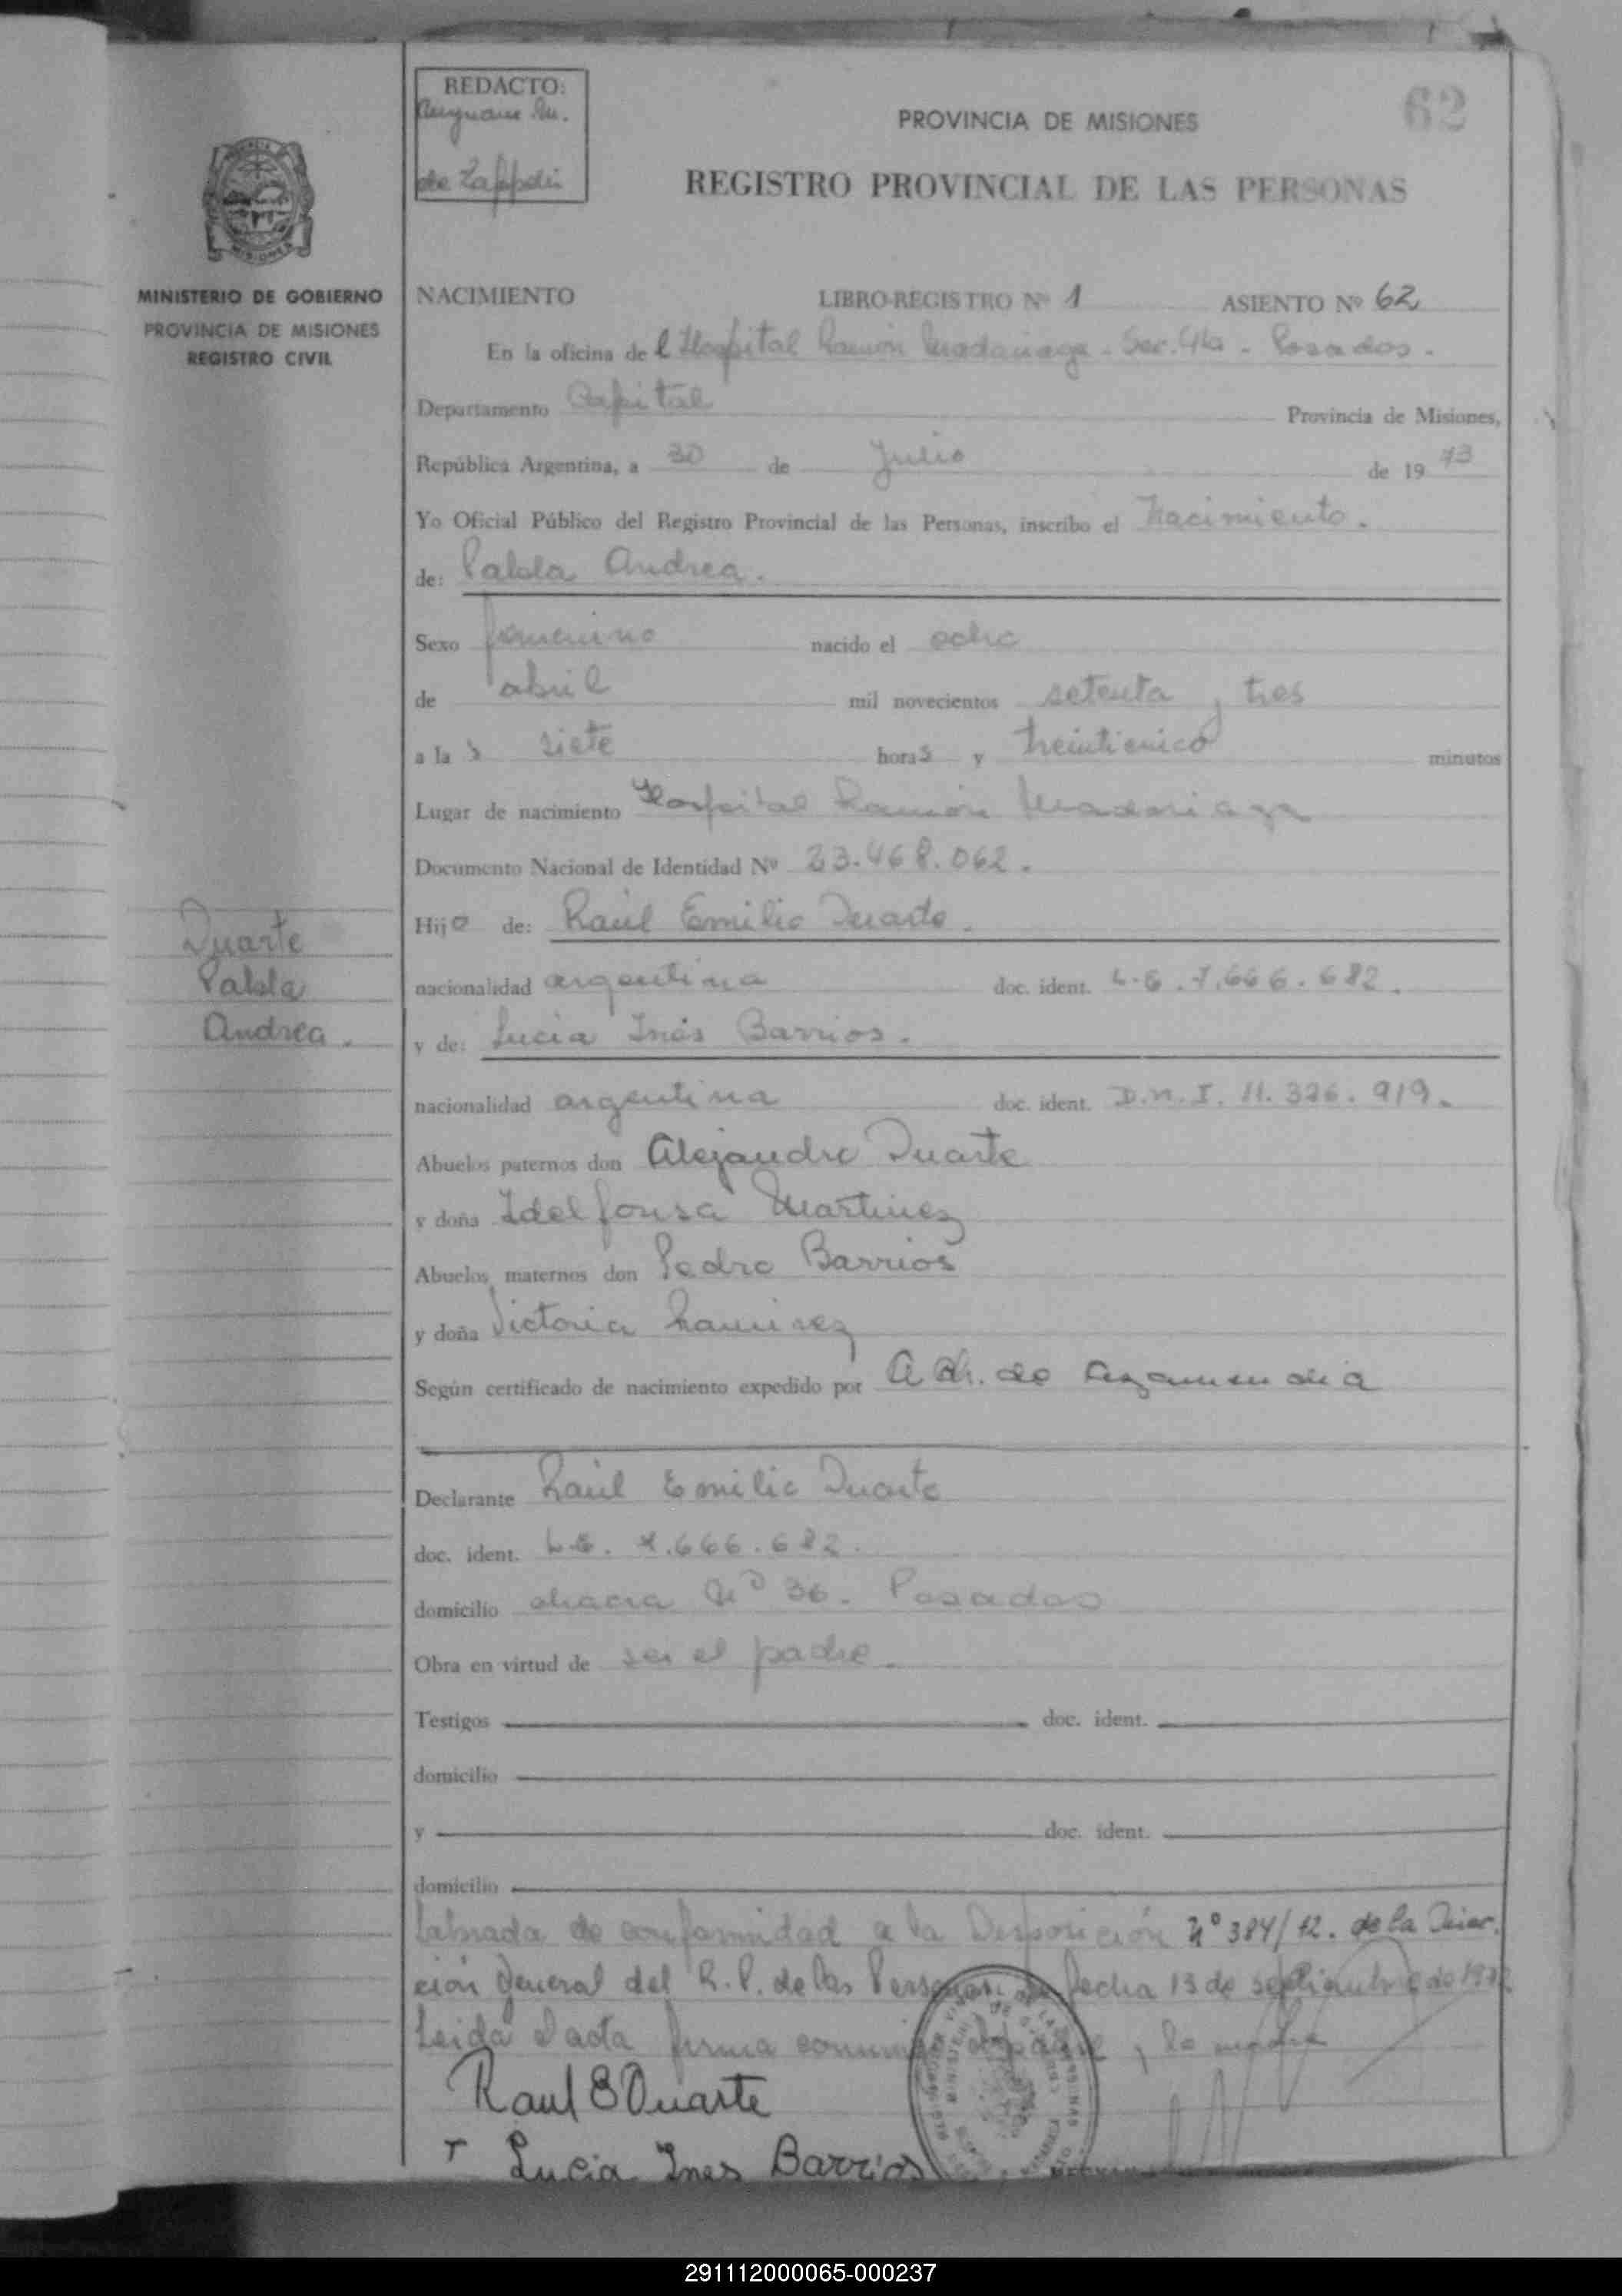 REDACTO:
de Zappeli
62
PROVINCIA DE MISIONES
REGISTRO PROVINCIAL DE LAS PERSONAS
MINISTERIO DE GOBIERNO
PROVINCIA DE MISIONES
REGISTRO CIVIL
NACIMIENTO LIBRO-REGISTRO Nº 1 ASIENTO Nº 62
En la oficina del Hospital Ramón Madariaga - Sec. 4ta - Posadas.
Departamento Capital Provincia de Misiones,
República Argentina, a 30 de Julio de 1973
Yo Oficial Público del Registro Provincial de las Personas, inscribo el Nacimiento.
de: Pabla Andrea.
Sexo femenino nacido el ocho
de abril mil novecientos setenta y tres
a las siete horas y treinticinco minutos
Lugar de nacimiento Hospital Ramón Madariaga
Documento Nacional de Identidad Nº 23.468.062.
Duarte
Pabla
Andrea.
Hija de: Raúl Emilio Duarte.
nacionalidad argentina doc. ident. L.E. 7.666.682.
y de: Lucia Inés Barrios.
nacionalidad argentina doc. ident. D.N.I. 11.326.919.
Abuelos paternos don Alejandro Duarte
y doña Idelfonsa Martinez
Abuelos maternos don Pedro Barrios
y doña Victoria Ramirez
Según certificado de nacimiento expedido por A Dr. de
Declarante Raúl Emilio Duarte
doc. ident. L.E. 7.666.682.
domicilio chacra Nº 36. Posadas
Obra en virtud de ser el padre.
Testigos doc. ident.
domicilio
y doc. ident.
domicilio
Labrada de conformidad a la Disposición Nº 384/72. de la Direc.
ción General del R.P. de las Personas de fecha 13 de septiembre de 1972
Leida el acta firma conmigo el padre y la madre
Raul E Duarte
Lucia Ines Barrios
291112000065-000237